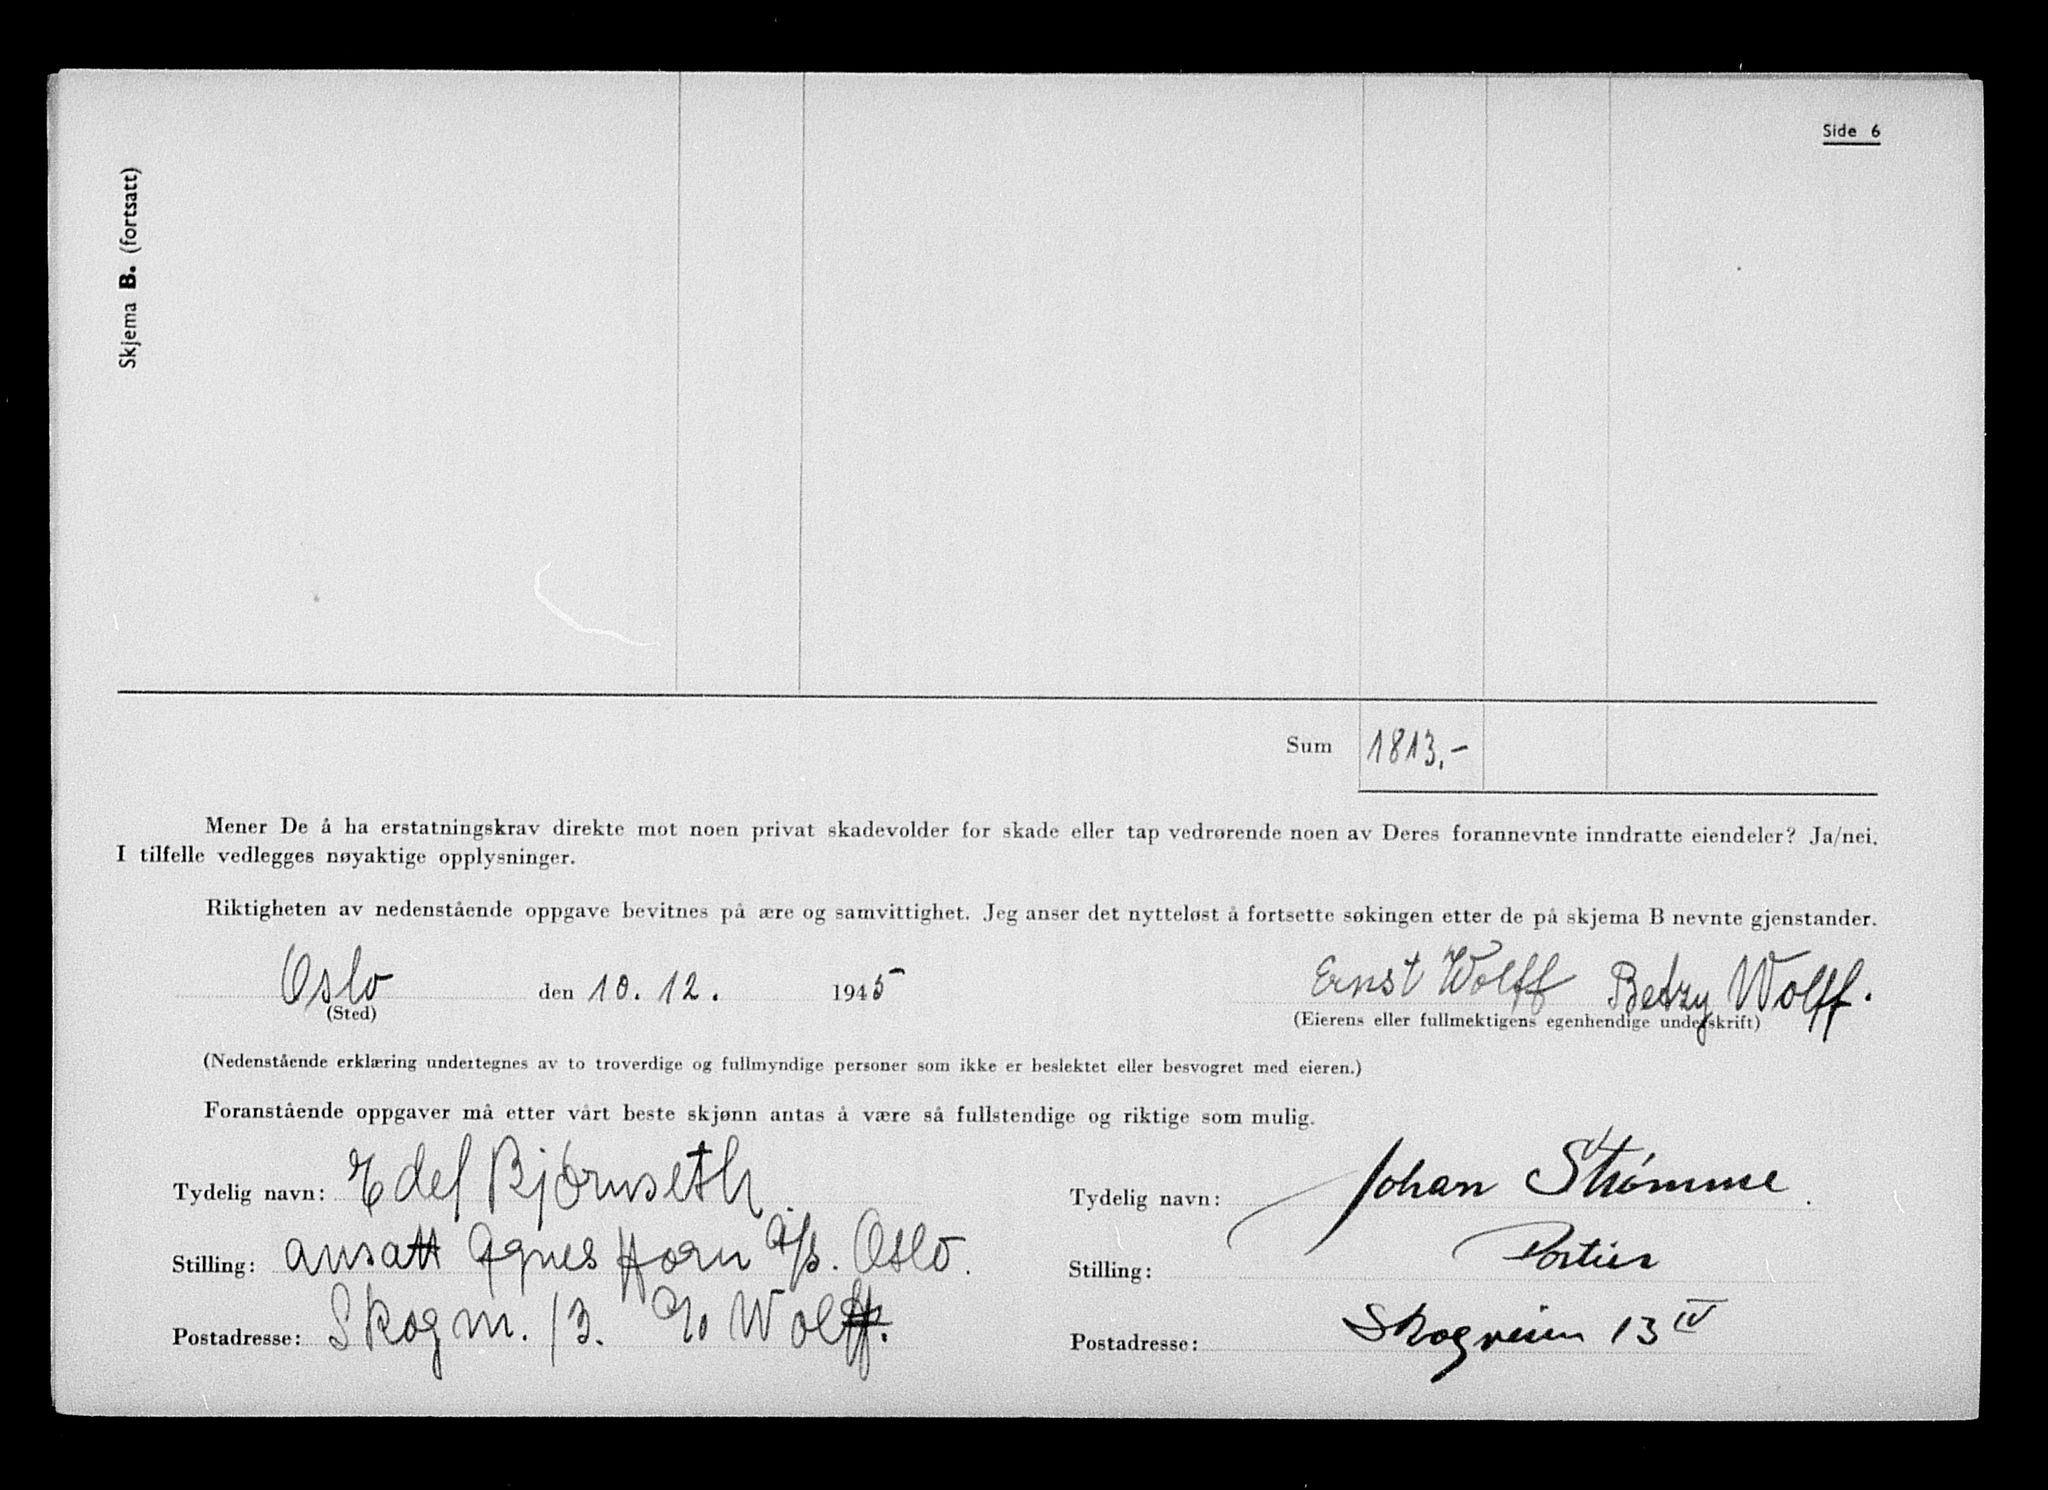 Side 6
Skjema B. (fortsatt)
Sum 1813,-
Mener De å ha erstatningskrav direkte mot noen privat skadevolder for skade eller tap vedrørende noen av Deres forannevnte inndratte eiendeler? Ja/nei.
I tilfelle vedlegges nøyaktige opplysninger.
Riktigheten av nedenstående oppgave bevitnes på ære og samvittighet. Jeg anser det nytteløst å fortsette søkingen etter de på skjema B nevnte gjenstander.
Oslo den 10. 12. 1945 Ernst Wolff Betzy Wolff.
(Sted) (Eierens eller fullmektigens egenhendige underskrift)
(Nedenstående erklæring undertegnes av to troverdige og fullmyndige personer som ikke er beslektet eller besvogret med eieren.)
Foranstående oppgaver må etter vårt beste skjønn antas å være så fullstendige og riktige som mulig.
Tydelig navn: Edel Bjørnseth Tydelig navn: Johan Strømme
Stilling: ansatt Agnes Horn A/s. Oslo. Stilling: Portier
Postadresse: Skogvn. 13. c/o Wolff. Postadresse: Skogveien 13 IV